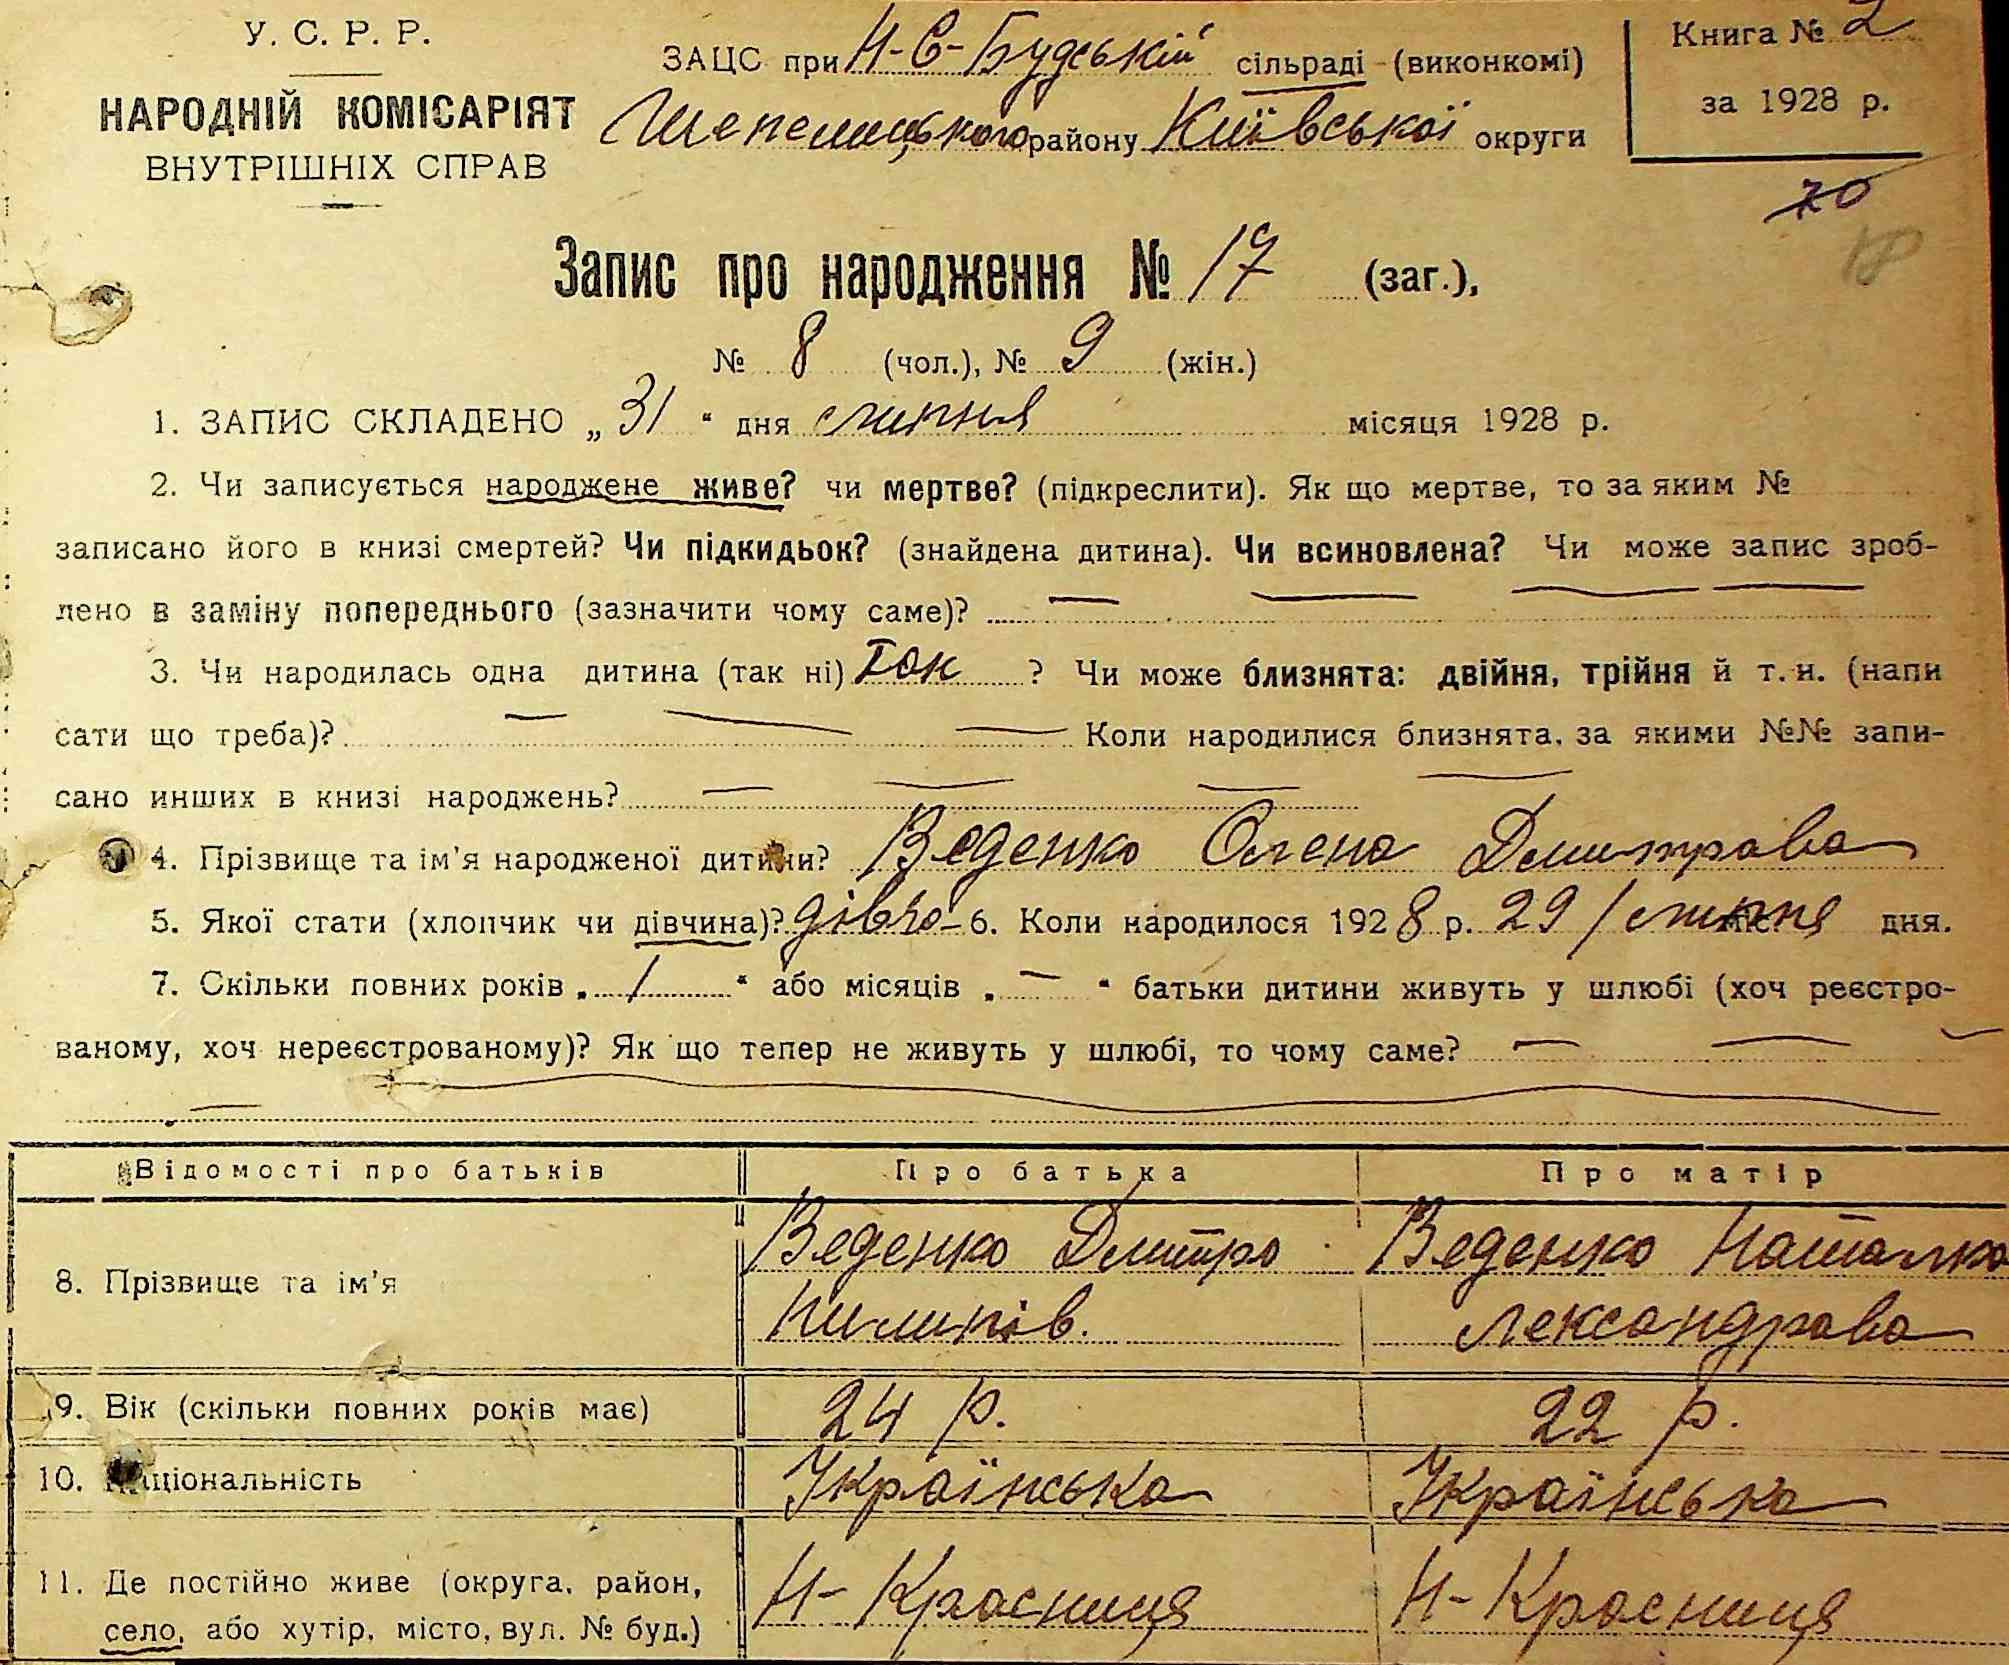 У. С. Р. Р.
НАРОДНІЙ КОМІСАРІЯТ
ВНУТРІШНІХ СПРАВ
ЗАЦС при Н-С-Будській сільраді (виконкомі)
Шепелицького району Київської округи
Книга № 2
за 1928 р.
70
18
Запис про народження № 17 (заг.),
№ 8 (чол.), № 9 (жін.)
1. ЗАПИС СКЛАДЕНО „ 31 “ дня липня місяця 1928 р.
2. Чи записується народжене живе? чи мертве? (підкреслити). Як що мертве, то за яким №
записано його в книзі смертей? Чи підкидьок? (знайдена дитина). Чи всиновлена? Чи може запис зроб-
лено в заміну попереднього (зазначити чому саме)? —
3. Чи народилась одна дитина (так ні) Так ? Чи може близнята: двійня, трійня й т. н. (напи
сати що треба)? — Коли народилися близнята, за якими №№ запи-
сано инших в книзі народжень? —
4. Прізвище та ім'я народженої дитини? Веденко Олена Дмитрова
5. Якої стати (хлопчик чи дівчина)? дівчо- 6. Коли народилося 1928 р. 29 / липня дня.
7. Скільки повних років „ 1 “ або місяців „ — “ батьки дитини живуть у шлюбі (хоч реєстро-
ваному, хоч нереєстрованому)? Як що тепер не живуть у шлюбі, то чому саме? —
Відомості про батьків Про батька Про матір
8. Прізвище та ім'я Веденко Дмитро Пилипів. Веденко Наталка Лександрова
9. Вік (скільки повних років має) 24 р. 22 р.
10. Національність Українська Українська
11. Де постійно живе (округа, район, село, або хутір, місто, вул. № буд.) Н-Красниця Н-Красниця